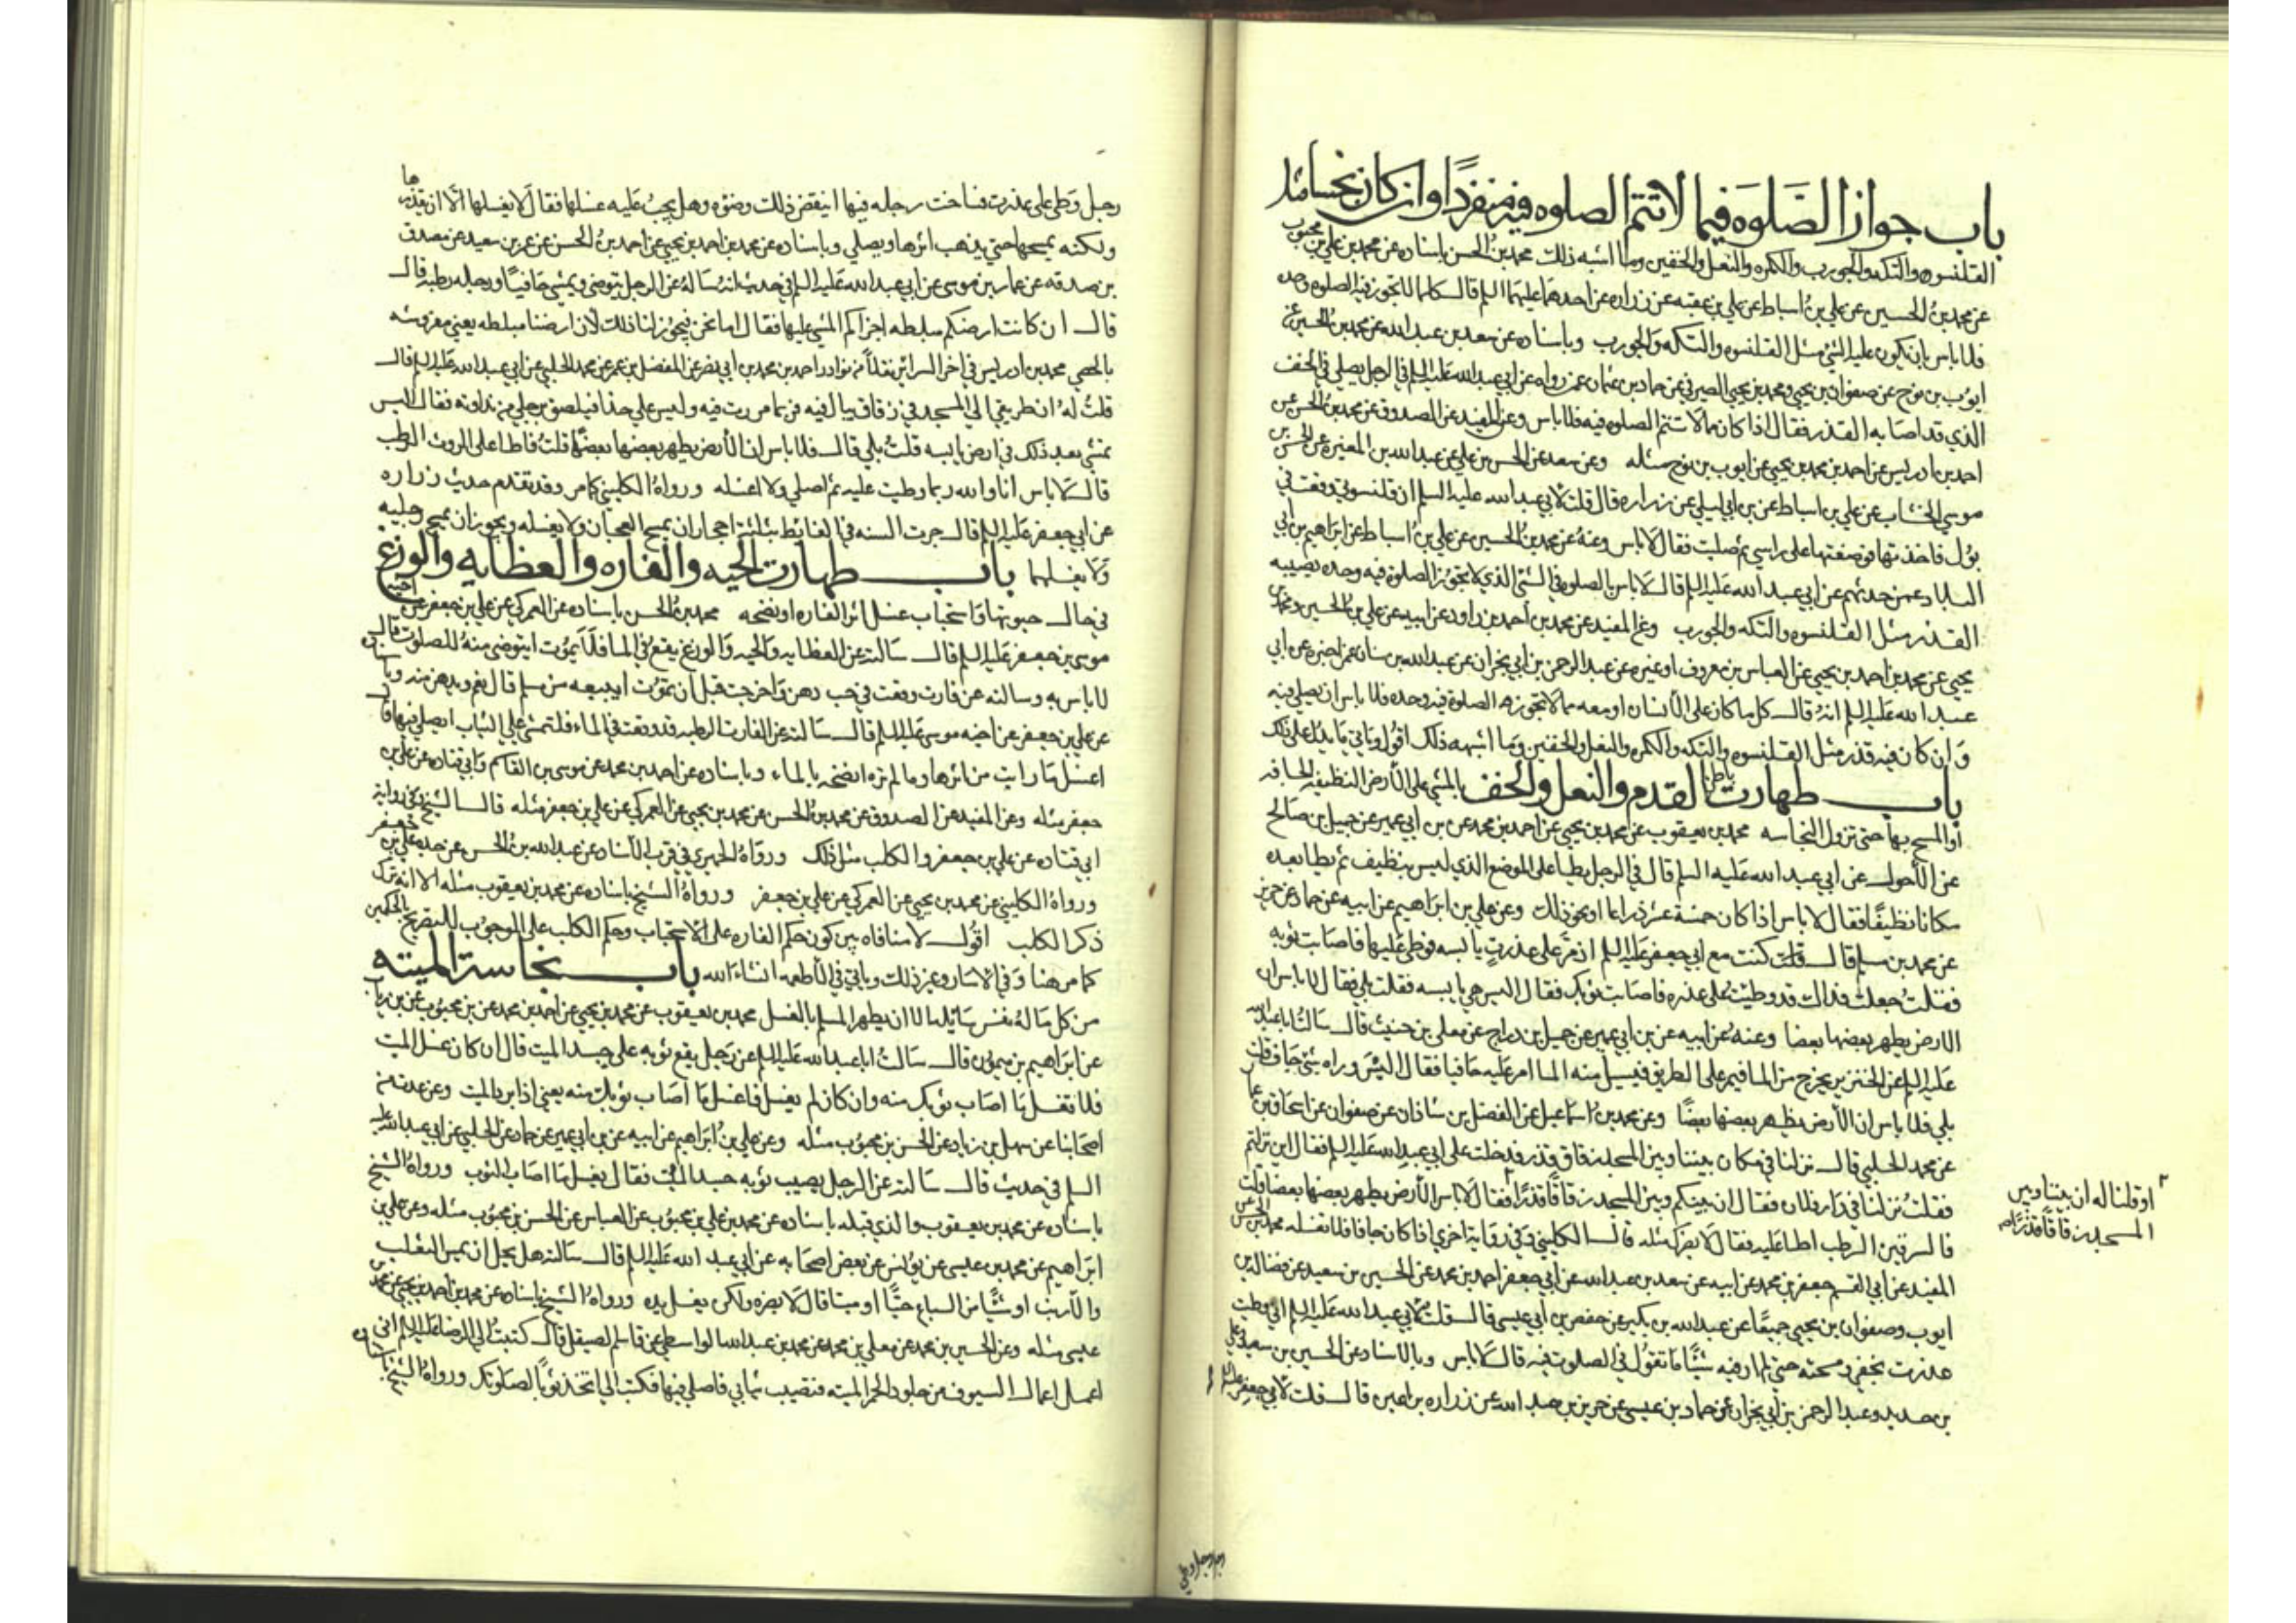 باب جواز الصَّلوه فيما لا تتم الصلوه فيه منفردًا وان كان نجسا مثل
القلنسوه والتكه والجورب والكمره والنعل والخفين وما اشبه ذلك محمد بنُ الحسن باسناده عن محمد بن علي بن محبوب
عن محمد بنُ الحسين عن علي بنُ اسباط عن علي بن عقبه عن زراره عن احدهما عليهما السلم قال كلما لا تجوز فيه الصلوه وحده
فلا باس بان يكون عليه الشئ مثل القلنسوه والتكه والجورب وباسناده عن سعد بن عبد الله عن محمد بنُ الحسين عن
ايوُب بن نوح عن صفوان بن يحيي ومحمد بن يحيي الصيرفي عن حماد بن عثمان عمن رواه عن ابي عبد الله عليه السلم في الرجل يصلي في الخف
الذي قد اصابه القذر فقال اذا كان مما لا تتم الصلوه فيه فلا باس وعن المفيد عن الصدوق عن محمد بنُ الحسن عن
احمد بن ادريس عن احمد بن محمد بن يحيي عن ايوب بن نوح مثله وعن سعد عن الحسن بن علي عن عبد الله بن المغيره عن الحسن بن
موسي الخشاب عن علي بن اسباط عن بن ابي ليلي عن زراره قال قلت لابي عبد الله عليه السلم ان قلنسوتي وقعت في
بوُل فاخذتها فوضعتها علي راسي ثم صليت فقال لا باس وعنهُ عن محمد بنُ الحسين عن علي بنُ اسباط عن ابراهيم بن ابي
البلاد عمن حدثهم عن ابي عبد الله عليه السلم قال لا باس بالصلوه في الشئ الذي لا تجوز الصلوة فيه وحده يصيبه
القذر مثل القلنسوه والتكه والجورب وعن المفيد عن محمد بن احمد بن داود عن ابيه عن علي بن الحسين ومحمد بن
يحيي عن محمد بن احمد بن يحيي عن العباس بن معروف او غيره عن عبد الرحمن بن ابي نجران عن عبد الله بن سنان عمن اخبره عن ابي
عبد الله عليه السلم انهُ قال كل ما كان علي الأنسان او معه مما لا تجوز فيه الصلوة فيه وحده فلا باس ان يصلي فيه
وَان كان فيه قذر مثل القلنسوه والتكه والكمره والنعل والخفين وَما اشبهه ذلك اقوُل وياتي ما يدل علي ذلك
باب طهارت باطن القدم والنعل والخف بالمشي علي الأرض النظيفه الجافه
او المسح بها حتي تزول النجاسه محمد بن يعقوب عن محمد بن يحيي عن احمد بن محمد عن بن ابي عمير عن جميل بن صالح
عن الأحول عن ابي عبد الله عليه السلم قال في الرجل يطيا علي الموضع الذي ليس بنظيف ثم يطا بعده
مكانا نظيفًا فقال لا باس اذا كان خمسة عشر ذراعا او نحو ذلك وعن علي بن ابراهيم عن ابيه عن حماد عن حريز
عن محمد بن مسلم قال قلت كنت مع ابي جعفر عليه السلم اذ مرَّ علي عذرتٍ يابسه فوطئ عليها فاصابت ثوبه
فقلتُ جعلت فداك قد وطيت علي عذره فاصابت ثوبك فقال اليس هي يابسه فقلت بلي فقال لا باس ان
الارض يطهر بعضها بعضا وعنه عن ابيه عن بن ابي عمير عن جميل بن دراج عن معلي بن خنيث قال سالتُ ابا عبد الله
عليه السلم عن الخنزير يخرج من الما فيمر علي الطريق فيسيل منه الما امر عليه حافيا فقال اليس وراه شئ جاف قلت
بلي فلا باس ان الأرض يطهر بعضها بعضًا وعن محمد بن اسماعيل عن الفضل بن شاذان عن صفوان عن اسحاق بن عمار
عن محمد الحلبي قال نزلنا في مكان بيننا وبين المسجد زقاق قذر فدخلت علي ابي عبد الله عليه السلم فقال اين نزلتم
فقلتُ نزلنا في دار فلان فقال ان بينكم وبين المسجد زقاقًا قذرًا ٢ فقال لا باس الأرض يطهر بعضها بعضا قلت
فالسرقين الرطب اطا عليه فقال لا يضرك مثله قال الكليني وفي رواية اخري اذا كان جافا فلا تغسله محمد بن الحسن عن
المفيد عن ابي القسم جعفر بن محمد عن ابيه عن سعد بن عبد الله عن ابي جعفر احمد بن محمد عن الحسين بن سعيد عن فضاله بن
ايوب وصفوان بن يحيي جميعًا عن عبد الله بن بكير عن حفص بن ابي عيسي قال قلت لابي عبد الله عليه السلم اني وطيت
عذرت بخفي ومسحته حتي لم ار فيه شيًا ما تقوُل في الصلوت فيه قال لا باس وبالأسناد عن الحسين بن سعيد وعلي
بن حديد وعبد الرحمن بن ابي نجران عن حماد بن عيسي عن حريز بن عبد الله عن زراره بن اعين قال قلت لابي جعفر عليه السلم
٢ او قلنا له ان بيننا وبين
المسجد زقاقًا قذرًا
رجل وَطي علي عذرت فساخت رجله فيها اينقض ذلك وضوه وهل يجبُ عليه غسلها فقال لا يغسلها الا ان يقذرها
ولكنه يمسحها حتي يذهب اثرها ويصلي وباسناده عن محمد بن احمد بن يحيي عن احمد بنُ الحسن عن عمر بن سعيد عن مصدق
بن صدقه عن عمار بن موسي عن ابي عبد الله عليه السلم في حديث انهُ سالهُ عن الرجل يتوضي ويمشي حافيًا ورجله رطبه قال
قال ان كانت ارضكم مبلطه اجزاكم المشي عليها فقال اما نحن فيجوز لنا ذلك لان ارضنا مبلطه يعني مفروشه
بالحصي محمد بن ادريس في اخر السرائر نقلًا من نوادر احمد بن محمد بن ابي نصر عن المفضل بن عمر عن محمد الحلبي عن ابي عبد الله عليه السلم قال
قلتُ لهُ ان طريقي الي المسجد في زقاق يبال فيه فربما مررت فيه وليس علي حذا فيلصق برجلي من نداوته فقال اليس
تمشي بعد ذلك في ارض يابسه قلتُ بلي قال فلا باس ان الأرض يطهر بعضها بعضًا قلتُ فاطا علي الروث الرطب
قال لا باس انا والله ربما وطيت عليه ثم اصلي ولا اغسله ورواهُ الكليني كما مر وقد تقدم حديث زراره
عن ابي جعفر عليه السلم قال جرت السنه في الغايط بثلثة احجار ان يمسح العجان ولا يغسله ويجوز ان يمسح رجليه
وَلا يغسلهما باب طهارت الحيه والفاره والعظايه والوزغ
في حال حيوتها وَاستحباب غسل اثر الفاره او نضحه محمد بنُ الحسن باسناده عن العمركي عن علي بن جعفر عن اخيه
موسي بن جعفر عليه السلم قال سالته عن العظايه والحيه وَالوزغ يقع في الما فلا يموُت ايتوضي منهُ للصلوت قال
لا باس به وسالته عن فارت وقعت في حب دهن وَاخرجت قبل ان تموُت ايبيعه من مسلم قال نعم ويدهن منه وباسناده
عن علي بن جعفر عن اخيه موسي عليه السلم قال سالته عن الفارت الرطبه قد وقعت في الماء فلتمشي علي الثياب ايصلي فيها قال
اغسل ما رايت من اثرها وما لم تره انضحه بالماء وباسناده عن احمد بن محمد عن موسي بن القاسم وَابي قتاده عن علي بن
جعفر مثله وعن المفيد عن الصدوق عن محمد بنُ الحسن عن محمد بن يحيي عن العمركي عن علي بن جعفر مثله قال الشيخ وفي رواية
ابي قتاده عن علي بن جعفر والكلب مثل ذلك وروَاهُ الحميري في قرب الأسناد عن عبد الله بنُ الحسن عن جده علي بن جعفر
ورواهُ الكليني عن محمد بن يحيي عن العمركي عن علي بن جعفر ورواهُ الشيخ باسناده عن محمد بن يعقوب مثله الا انه ترك
ذكر الكلب اقوُل لا منافاه بين كون حكم الفاره علي الاستحباب وحكم الكلب علي الوجوُب للتصريح بالحكمين
كما مر هنا وَفي الاسار وغير ذلك وياتي في الأطعمه انشاء الله باب نجاست الميته
من كل ما لهُ نفس سايله الا ان يطهر المسلم بالغسل محمد بن يعقوب عن محمد بن يحيي عن احمد بن محمد عن بن محبوب عن بن رياب
عن ابراهيم بن ميمون قال سالتُ ابا عبد الله عليه السلم عن رَجل يقع ثوبه علي جسد الميت قال ان كان غسل الميت
فلا تغسل ما اصاب ثوبك منه وان كان لم يغسل فاغسل ما اصاب ثوبك منه يعني اذا برد الميت وعن عدت من
اصحابنا عن سهل بن زياد عن الحسن بن محبوُب مثله وعن علي بنُ ابراهيم عن ابيه عن بن ابي عمير عن حماد عن الحلبي عن ابي عبد الله عليه
السلم في حديث قال سالته عن الرجل يصيب ثوبه جسد الميت فقال يغسل ما اصاب الثوب ورواهُ الشيخ
باسناده عن محمد بن يعقوب والذي قبله باسناده عن محمد بن علي بن محبوُب عن العباس عن الحسن بن محبوُب مثله وعن علي بن
ابراهيم عن محمد بن عيسي عن يوُنس عن بعض اصحابه عن ابي عبد الله عليه السلم قال سالته هل يحل ان يمس الثعلب
والأرنب او شيًا من السباع حيًا او ميتا قال لا يضره ولكن يغسل يده ورواهُ الشيخ باسناده عن محمد بن احمد بن يحيي عن محمد بن
عيسي مثله وعن الحسين بن محمد عن معلي بن محمد عن محمد بن عبد الله الواسطي عن قاسم الصيقل قال كتبتُ الي الرضا عليه السلم اني
اعمل اعماد السيوف من جلود الحمر الميته فتصيب ثيابي فاصلي فيها فكتب الي اتخذ ثوبًا لصلوتك ورواهُ الشيخ باسناده
رجل وطي